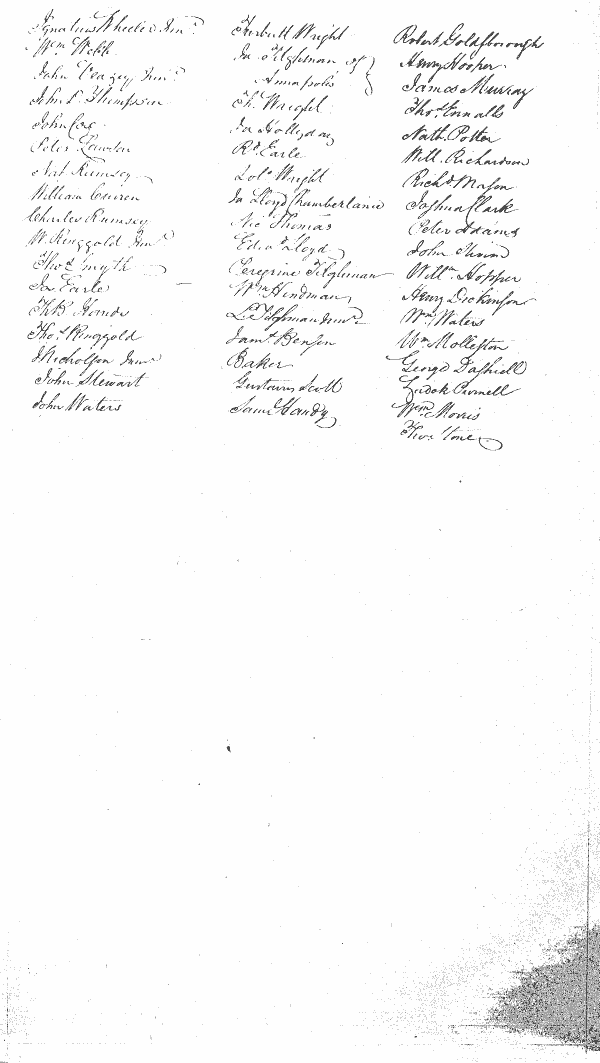 Ignatius Wheeler Junr
Wm Webb
John Veazey Junr
John D. Thompson
John Cox
Peter Lawson
Nat Ramsey
William Currer
Charles Rumsey
W. Ringgold Junr
Thos Smyth
Jas Earle
Th B Hands
Thos Ringgold
J Nicholson Junr
John Stewart
John Waters
Turbutt Wright
Ja Tilghman of
Annapolis
Th. Wright
Ja Hollyday
Rd Earle
Solo Wright
Ja Lloyd Chamberlaine
Nic Thomas
Edwd Lloyd
Peregrine Tilghman
Wm Hindman
Tilghman Junr
Jams Benson
Baker
Gustavus Scott
Saml Handy
Robert Goldsborough
Henry Hooper
James Murray
Thos Ennalls
Nath. Potter
Will. Richardson
Richd Mason
Joshua Clark
Peter Adams
John
Willm Hopper
Henry Dickinson
Wm Waters
Wm Molleston
George Dashiell
Purnell
Wm Morris
Thos Stone